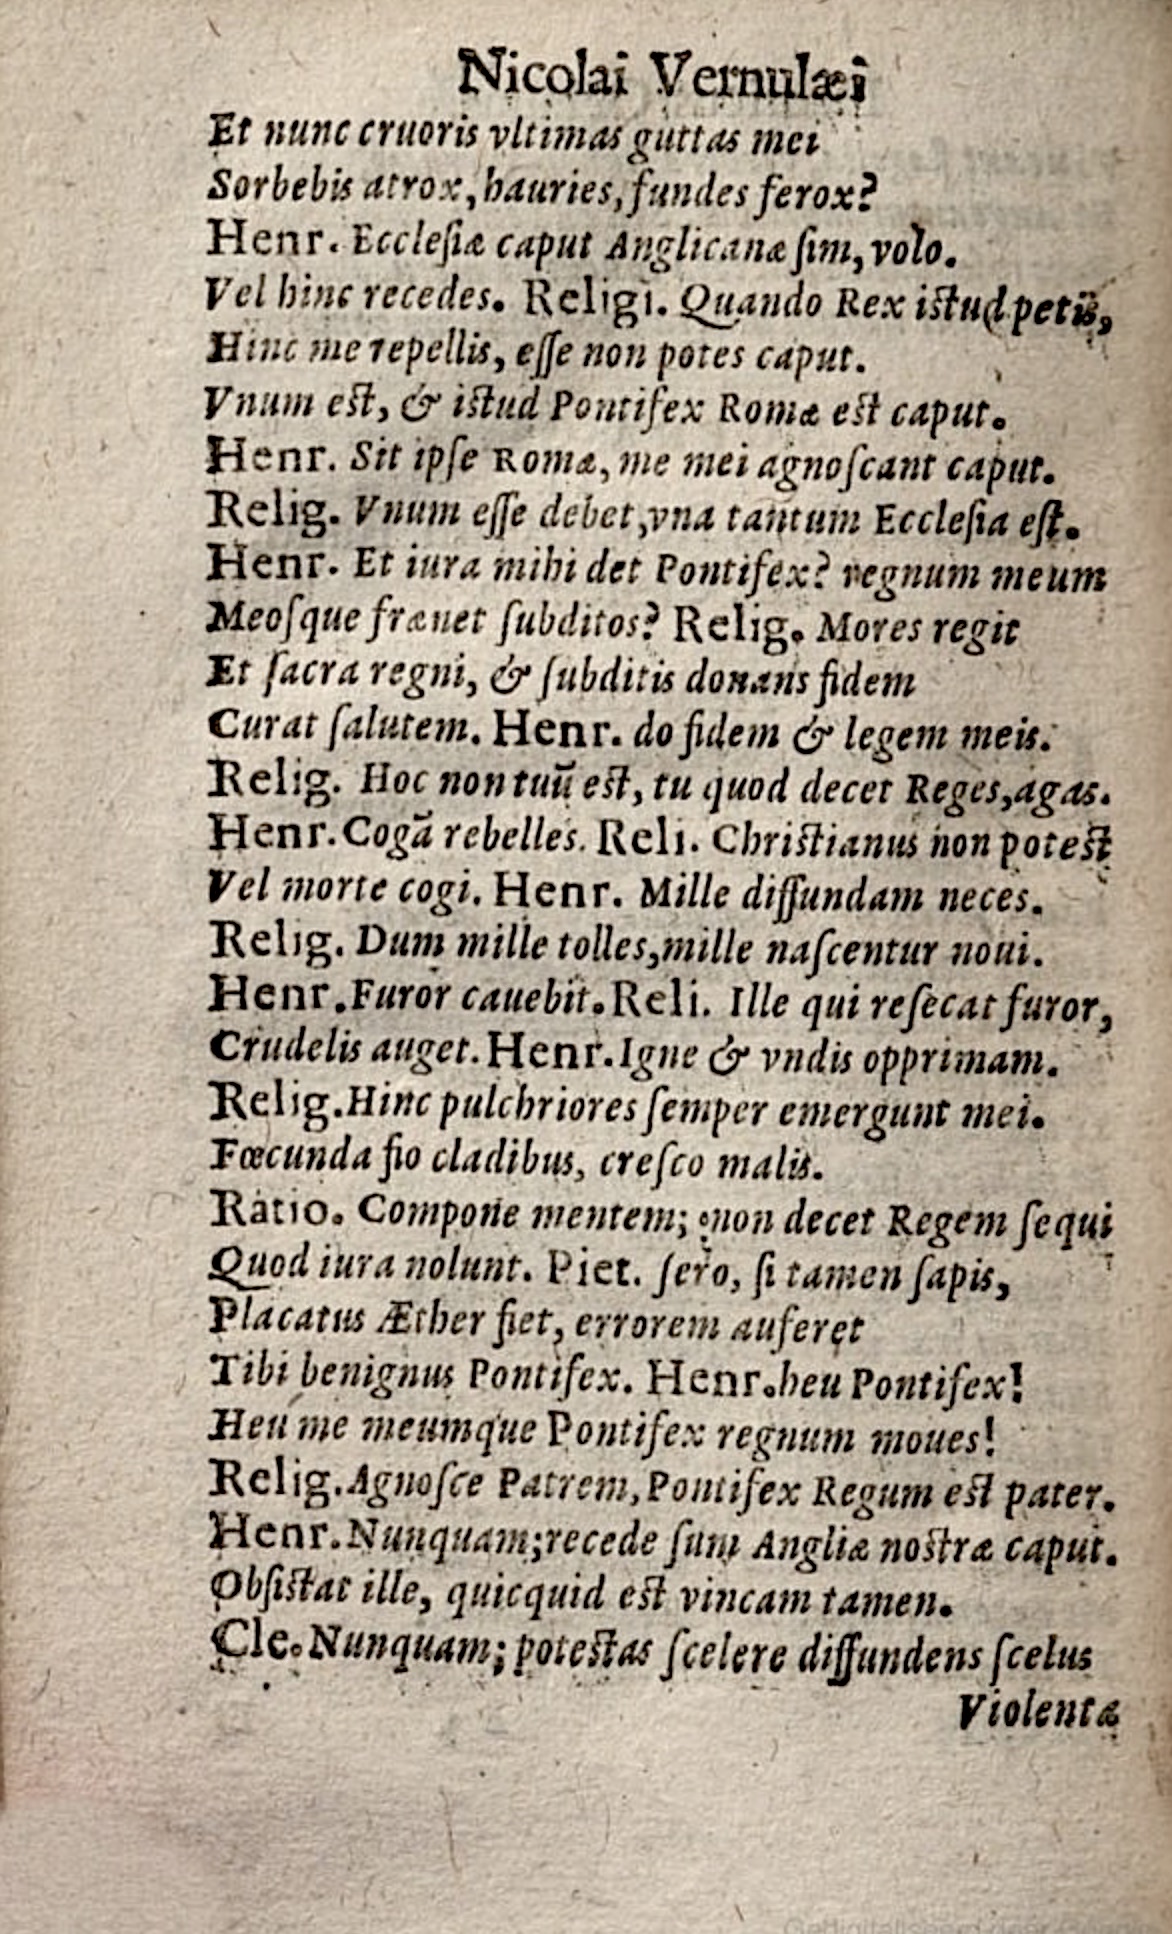 Nicolai Vernulæi
Et nunc cruoris vltimas guttas mei
Sorbebis atrox, hauries, fundes ferox?
Henr. Ecclesiæ caput Anglicanæ sim, volo.
Vel hinc recedes. Religi. Quando Rex istud petis,
Hinc me repellis, esse non potes caput.
Vnum est, & istud Pontifex Romæ est caput.
Henr. Sit ipse Romæ, me mei agnoscant caput.
Relig. Vnum esse debet, vna tantum Ecclesia est.
Henr. Et iura mihi det Pontifex? regnum meum
Meosque frænet subditos? Relig. Mores regit
Et sacra regni, & subditis donans fidem
Curat salutem. Henr. do fidem & legem meis.
Relig. Hoc non tuū est, tu quod decet Reges, agas.
Henr. Cogā rebelles. Reli. Christianus non potest
Vel morte cogi. Henr. Mille diffundam neces.
Relig. Dum mille tolles, mille nascentur noui.
Henr. Furor cauebit. Reli. Ille qui resecat furor,
Crudelis auget. Henr. Igne & vndis opprimam.
Relig. Hinc pulchriores semper emergunt mei.
Fœcunda fio cladibus, cresco malis.
Ratio. Compone mentem; non decet Regem sequi
Quod iura nolunt. Piet. sero, si tamen sapis,
Placatus Æther fiet, errorem auferet
Tibi benignus Pontifex. Henr. heu Pontifex!
Heu me meumque Pontifex regnum moues!
Relig. Agnosce Patrem, Pontifex Regum est pater.
Henr. Nunquam; recede sum Angliæ nostræ caput.
Obsistat ille, quicquid est vincam tamen.
Cle. Nunquam; potestas scelere diffundens scelus
Violentæ